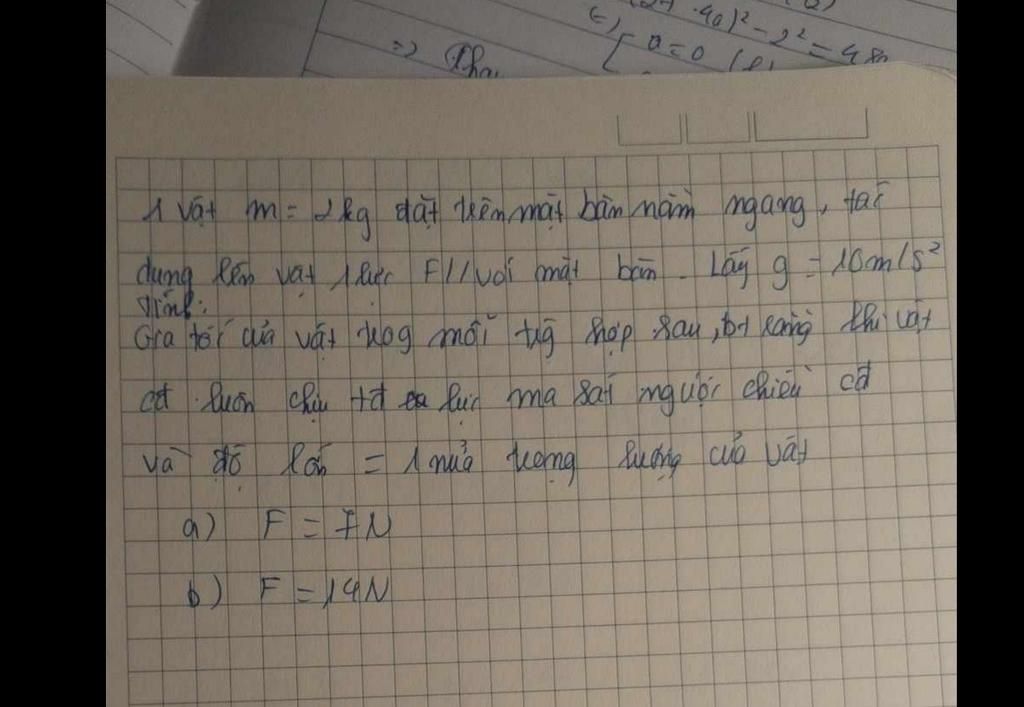 (2+ .4a)² - 2² = 4
(=) [ a = 0
=>
1 vật m = 2kg đặt trên mặt bàn nằm ngang, tác
dụng lên vật 1 lực F // với mặt bàn. Lấy g = 10m/s²
Tính:
Gia tốc của vật trog mỗi trg hợp sau, bt rằng khi vật
cđ luôn chịu td lực ma sát ngược chiều cđ
và độ lớn = 1 nửa trọng lượng của vật
a) F = 7N
b) F = 14N